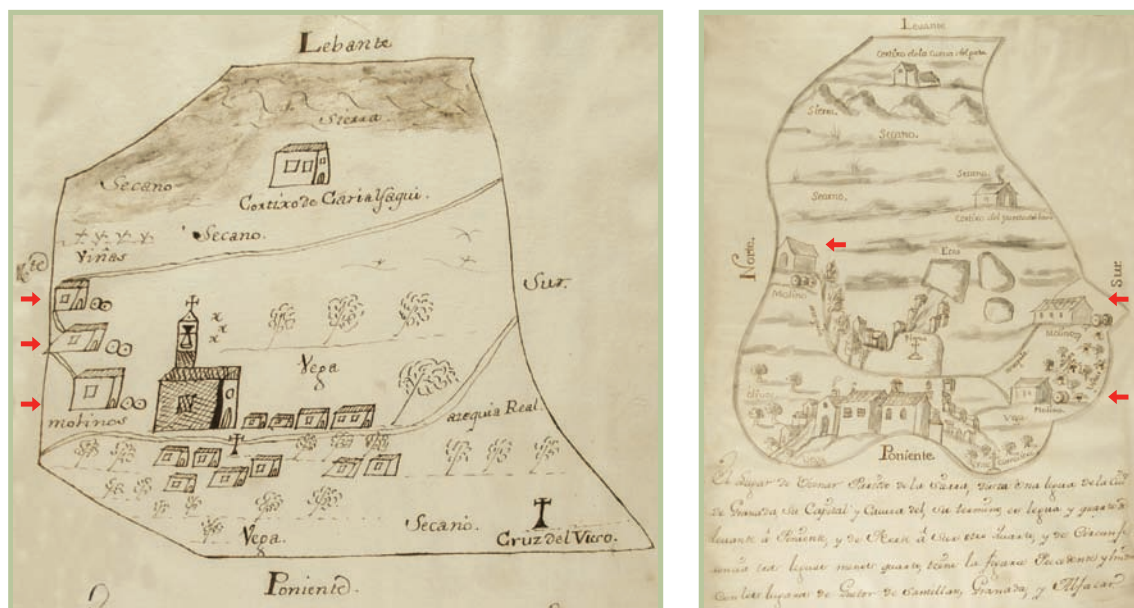 Lebante
Sierra
Secano
Cortixo de Carialfaqui.
Secano.
Viñas
Nte
Sur.
Vega
molinos
azequia Real.
Secano.
Vega.
Cruz del Vicco.
Poniente.
Levante
Cortixo de la Cueva del
Sierra.
Secano.
Secano.
Secano.
Cortixo del
Norte.
Molino
Eras
Sur.
Molino
Molino
Vega
Olivos
Poniente.
El Lugar de de la Sierra, dista una legua de la Ciu.d
de Granada, su Capital y Caveza del, su termino, es legua y quarto de
levante á Poniente, y de Norte á Sur tres quartos, y de Circunfe
rencia tres leguas menos quarto, tiene la figura Precedente y linda
con los lugares de Guetor de Santillan, Granada, y Alfacar